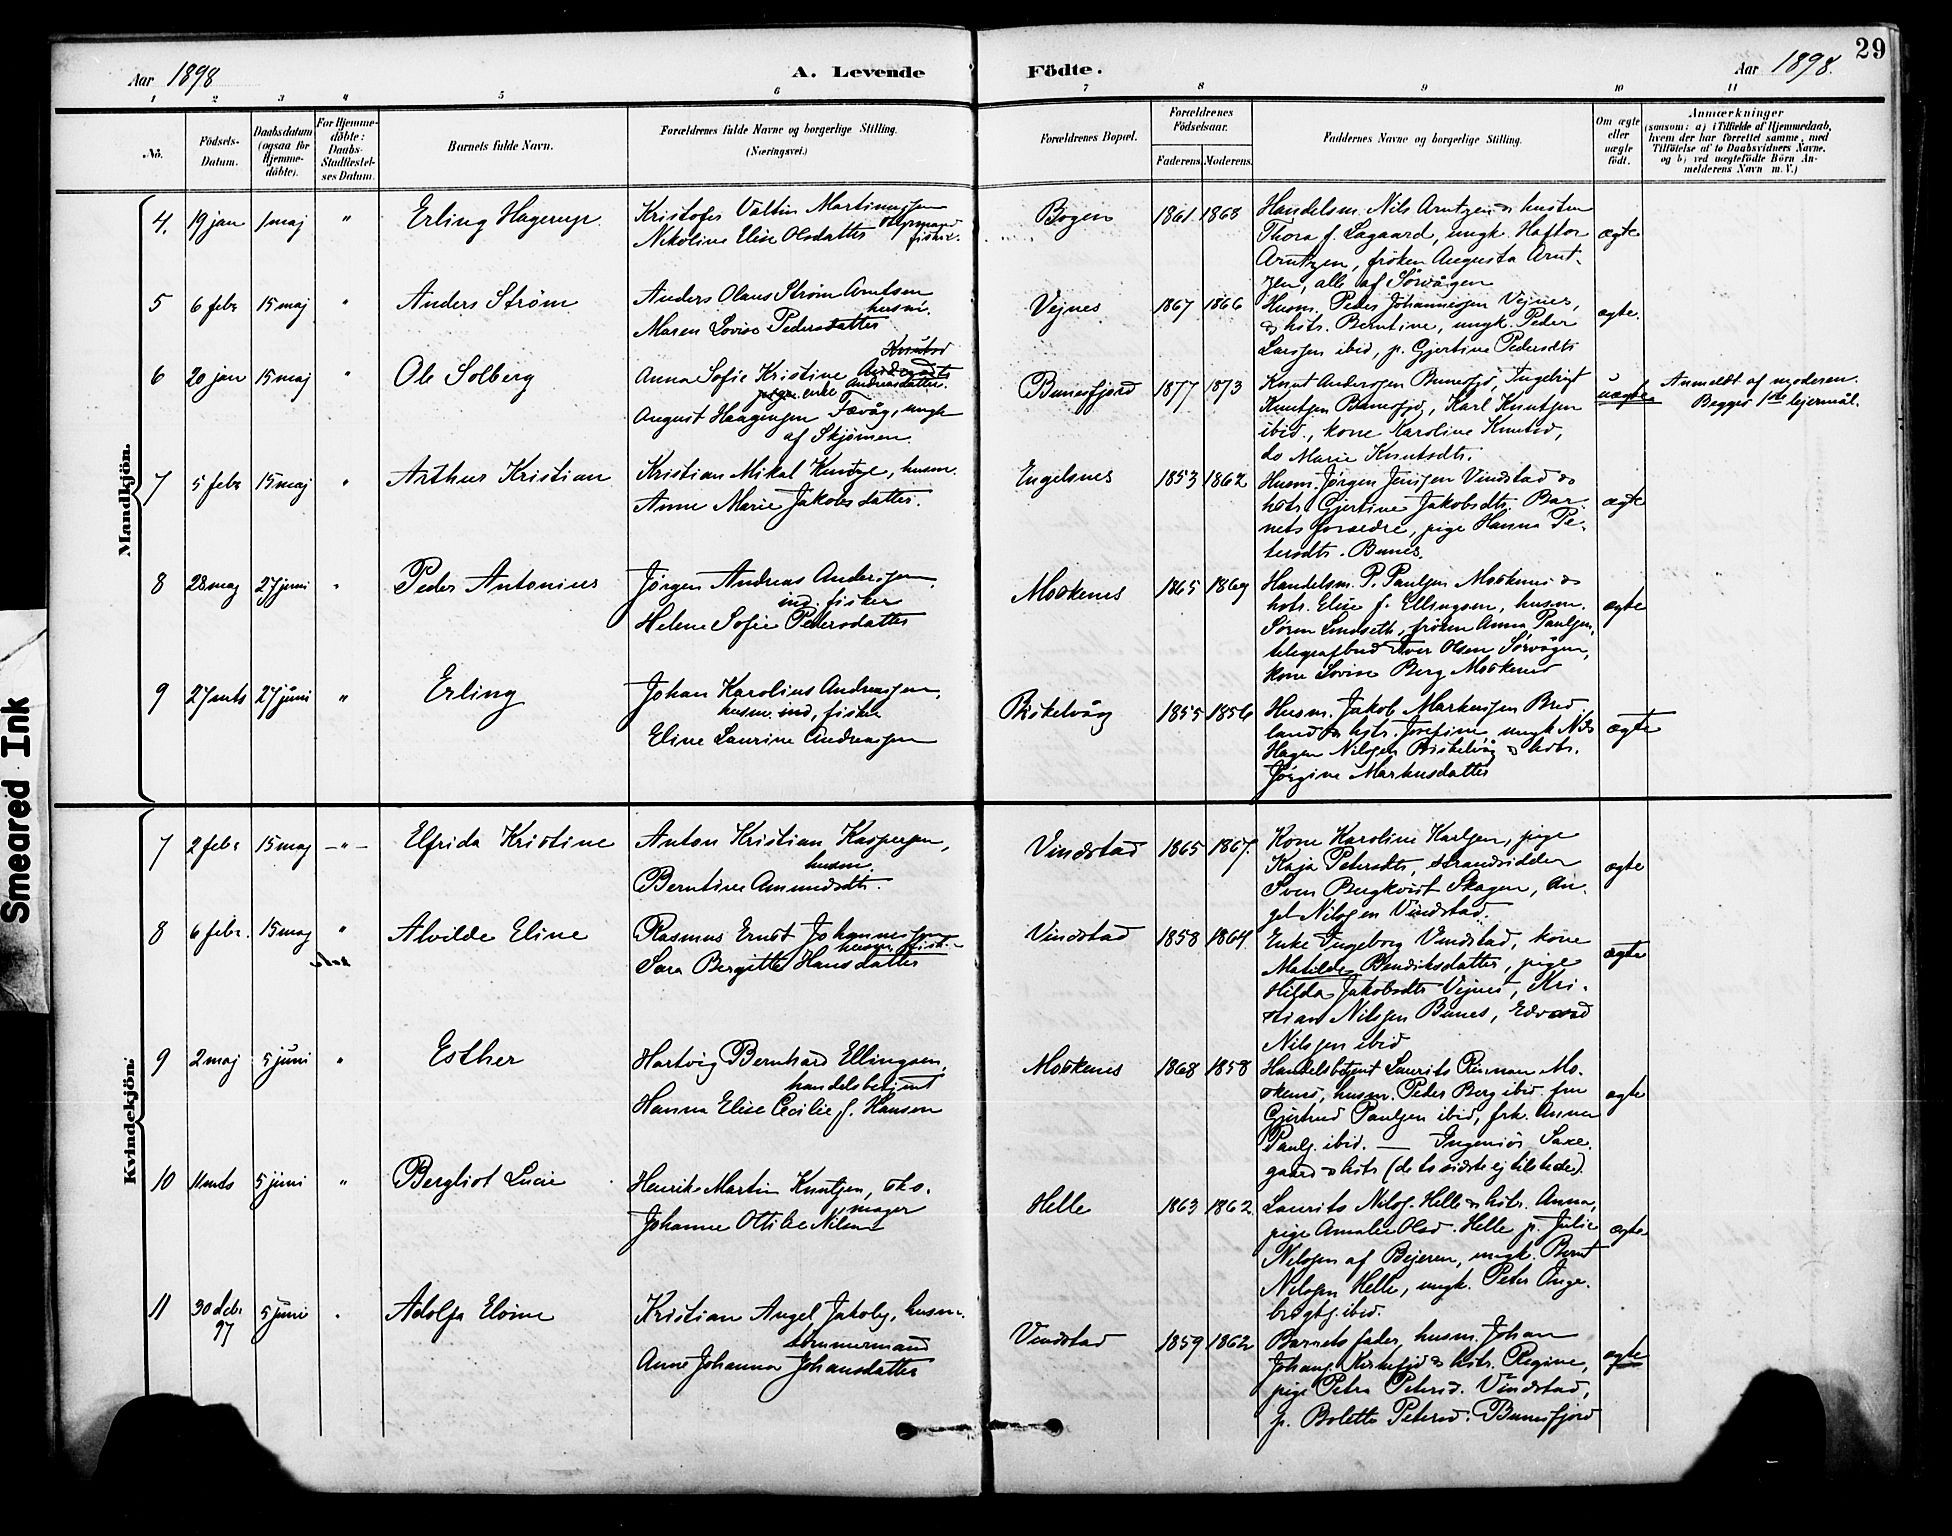 29
Aar 1898
A. Levende
Födte.
Aar 1898.
1 2 3 4 5 6 7 8 9 10 11
No.
Födsels-
Datum.
Daabsdatum
(ogsaa for
Hjemme-
döbte).
For Hjemme-
döbte:
Daabs-
Stadfæstel-
ses Datum.
Barnets fulde Navn.
Forældrenes fulde Navne og borgerlige Stilling.
(Næringsvei.)
Forældrenes Bopæl.
Forældrenes
Födselsaar.
Faderens. Moderens.
Faddernes Navne og borgerlige Stilling.
Om ægte
eller
uægte
födt.
Anmærkninger
(saasom: a) i Tilfælde af Hjemmedaab,
hvem der har forrettet samme, med
Tilföielse af to Daabsvidners Navne.
og b) ved uægtefödte Börn An-
melderens Navn m. V.)
Mandkjön.
4. 19 jan 1 maj " Erling Hagerup.
Kristofer Valtin Martinussen
strømand
fisker.
Nikoline Elise Olsdatter
Bogen 1861 1868
Handelsm. Nils Arntzen & hustru
Thora f. Lagaard, ungk. Haftor
Arntzen, frøken Augusta Arnt-
zen, alle af Sørvågen
ægte
5 6 febr 15 maj " Anders Strøm
Anders Olaus Strøm Arntsen
husm.
Maren Lovise Pedersdatter
Vejnes 1867 1866
Husm. Peder Johannessen Vejnes,
& hstr. Berntine, ungk. Peder
Larssen ibid, p. Gjertine Pedersdtr
ægte.
6 20 jan 15 maj " Ole Solberg
Anna Sofie Kristine
Andreasdatter.
pige enke
August Haagensen Fævåg, ungk
af Skjomen.
Bunesfjord 1877 1873
Knut Anderssen Bunesfj, Ingebrigt
Knutsen Bunesfjd, Karl Knutsen
ibid., kone Karoline Knutsd,
do Marie Knutsdtr.
uægte
Anmeldt af moderen.
Begges 1ste lejermål.
7 5 febr 15 maj " Arthur Kristian
Kristian Mikal, husm.
Anne Marie Jakobsdatter.
Engelsnes 1853 1862
Husm. Jørgen Jenssen Vindstad &
hstr Gjertine Jakobsdtr. Bar-
nets forældre, pige Hanna Pe-
tersdtr. Bunes.
ægte
8 28 maj 27 juni " Peder Antonius
Jørgen Andreas Anderssen,
ind. fisker
Helene Sofie Pedersdatter
Moskenes 1865 1869
Handelsm. P. Paulsen Moskenes &
hstr. Elise f. Ellingsen, husm.
Søren Lindseth, frøken Anna Paulsen,
telegrafbud Iver Olsen Sørvågen,
kone Lovise Berg Moskenes
ægte
9 27 mts 27 juni " Erling
Johan Karolius Andreassen,
husm. ind, fisker
Eline Laurine Andreassen
Biskelvåg 1855 1856
Husm. Jakob Markussen Bred-
land & hstr. Josefine, ungk Nils
Hagen Nilssen Biskelvåg & hstr.
Jørgine Markusdatter
ægte
Kvindekjön.
7 2 febr 15 maj — " — Elfrida Kristine
Anton Kristian Kaspersen,
husm.
Berntine Amundsdtr.
Vindstad 1865 1867.
Kone Karoline Karlsen, pige
Kaja Petersdtr, strandsidder
Sven Bergkvist Skagen, An-
gel Nilssen Vindstad.
ægte
8 6 febr. 15 maj " Alvilde Eline
Rasmus Ernst Johannessen
husm. fisker
Sara Bergitte Hansdatter
Vindstad 1858 1864.
Enke Ingeborg Vindstad, kone
Matilde Bendiksdatter, pige
Hilda Jakobsdtr Vejnes, Kri-
stian Nilssen Bunes, Edvard
Nilssen ibid
ægte
9 2 maj 5 juni " Esther
Hartvig Bernhard Ellingsen,
handelsbetjent
Hanna Elise Cecilie f. Hansen
Moskenes 1868 1858
Handelsbetjent Laurits Mo-
skenes, husm. Peder Berg ibid. fru
Gjertrud Paulsen ibid, frk. Anna
Pauls. ibid. — Ingeniør Saxe-
gaard & hstr (de to sidste ej tilstede).
ægte
10 11 mts 5 juni " Bergliot Lucie
Henrik Martin Knutsen, sko-
mager
Johanne Ottilie Nilsen
Helle 1863 1862
Laurits Nilss. Helle & hstr. Anna,
pige Amalie Olsd. Helle p. Julie
Nilssen af Bejeren, ungk. Bernt
Nilssen Helle, ungk. Peter Inge-
brigts. ibid.
ægte.
11 30 debr 97 5 juni " Adolfa Elvine
Kristian Angel Jakobs, husm.
tømmermand
Anne Johanna Johansdatter
Vindstad 1859 1862
Barnets fader, husm. Johan
Johans. Kirkefjd & hstr. Regine,
pige Petra Petersd. Vindstad,
p. Bolette Petersd. Bunesfjord
ægte
Smeared Ink